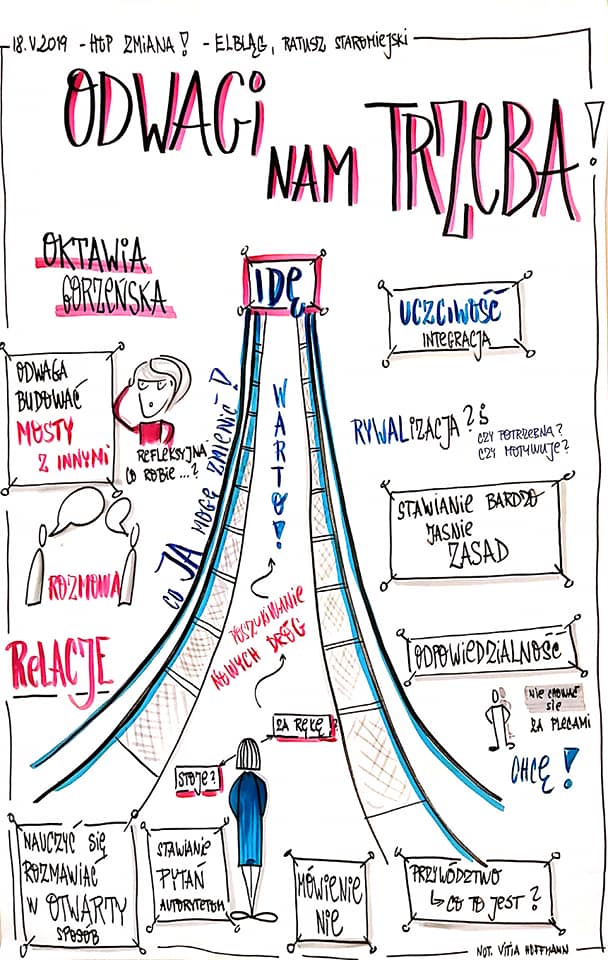 18.V.2019 - HOP ZMIANA! - ELBLĄG, RATUSZ STAROMIEJSKI
ODWAGI
NAM TRZEBA!
OKTAWIA
GORZEŃSKA
IDĘ
UCZCIWOŚĆ
INTEGRACJA
ODWAGA
BUDOWAĆ
MOSTY
Z INNYMI
REFLEKSYJNA
CO ROBIĘ...?
CO JA MOGĘ ZMIENIĆ!
WARTO!
RYWALIZACJA?
CZY POTRZEBNA?
CZY MOTYWUJE?
STAWIANIE BARDZO
JASNIE
ZASAD
ROZMOWA
POSZUKIWANIE
NOWYCH DRÓG
RELACJE
ODPOWIEDZIALNOŚĆ
NIE CHOWAĆ
SIĘ
ZA PLECAMI
CHCĘ!
ZA RĘKĘ?
STOJĘ?
NAUCZYĆ SIĘ
ROZMAWIAĆ
W OTWARTY
SPOSÓB
STAWIANIE
PYTAŃ
AUTORYTETOM
MÓWIENIE
NIE
PRZYWÓDZTWO
CO TO JEST?
NOT. VITIA HOFFMANN